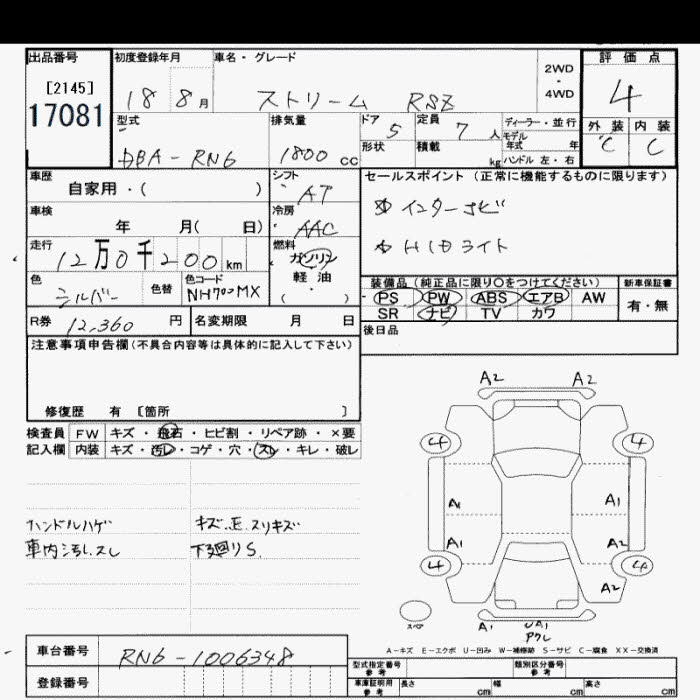 出品番号 初度登録年月 車名・グレード 2WD・4WD 評価点
[2145]
17081 18 8月 ストリーム RSZ 4
型式 排気量 ドア 定員 ディーラー・並行 外装 内装
DBA-RN6 1800cc 5 7人 モデル年式 年 C C
形状 積載 kg ハンドル 左・右
車歴 シフト セールスポイント(正常に機能するものに限ります)
自家用・( ) AT
車検 冷房 インターナビ
年 月( 日) AAC
走行 燃料 HIDライト
12万0千200km ガソリン
色 色替 色コード 軽油 装備品(純正品に限り○をつけてください) 新車保証書
シルバー NH700MX ( ) PS PW ABS エアB AW 有・無
SR ナビ TV カワ
R券 12,360円 名変期限 月 日 後日品
注意事項申告欄(不具合内容等は具体的に記入して下さい)
修復歴 有 [箇所 ]
検査員 FW キズ・飛石・ヒビ割・リペア跡・×要
記入欄 内装 キズ・汚レ・コゲ・穴・スレ・キレ・破レ
A2 A2
4 4
A1 A1
A1 A2
4 4
A2
ハンドルハゲ キズ.E.スリキズ
車内汚レ.スレ 下廻りS.
スペア A1 UA1
A-キズ E-エクボ U-凹み W-補修跡 S-サビ C-腐食 XX-交換済
車台番号 RN6-1006348
型式指定番号 参考 類別区分番号 参考
登録番号 車庫証明用 参考 長さ cm 幅 cm 高さ cm